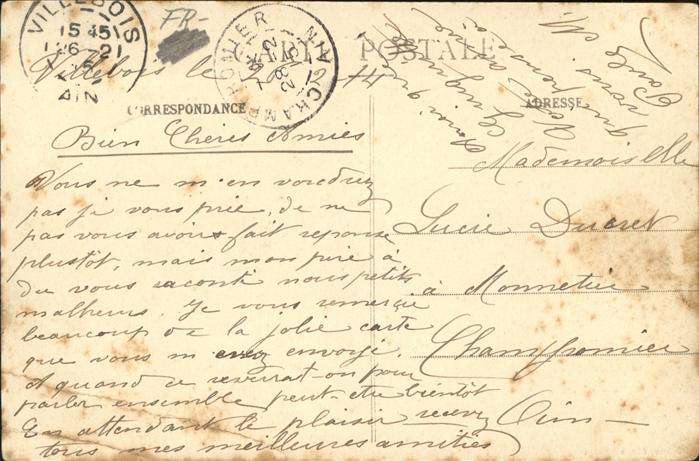 VILLEBOIS
15 45
26-2
AIN
FR-
CHAMPFROMIER
AIN
CARTE POSTALE
Villebois le
14
CORRESPONDANCE
ADRESSE
Bien Cheres Amies
Vous ne m'en voudrez
pas je vous prie, de ne
pas vous avoir fait reponse
plustôt, mais mon père à
du vous raconté nous petits
malheurs. Je vous remercie
beaucoup de la jolie carte
que vous m'avez envoyé.
A quand ce reverrat-on pour
parler ensemble peut-etre bientôt
En attendant le plaisir recevez
tous mes meilleures amitiés
Mademoiselle
Lucie Ducret
à Monnetier
Champfromier
Ain